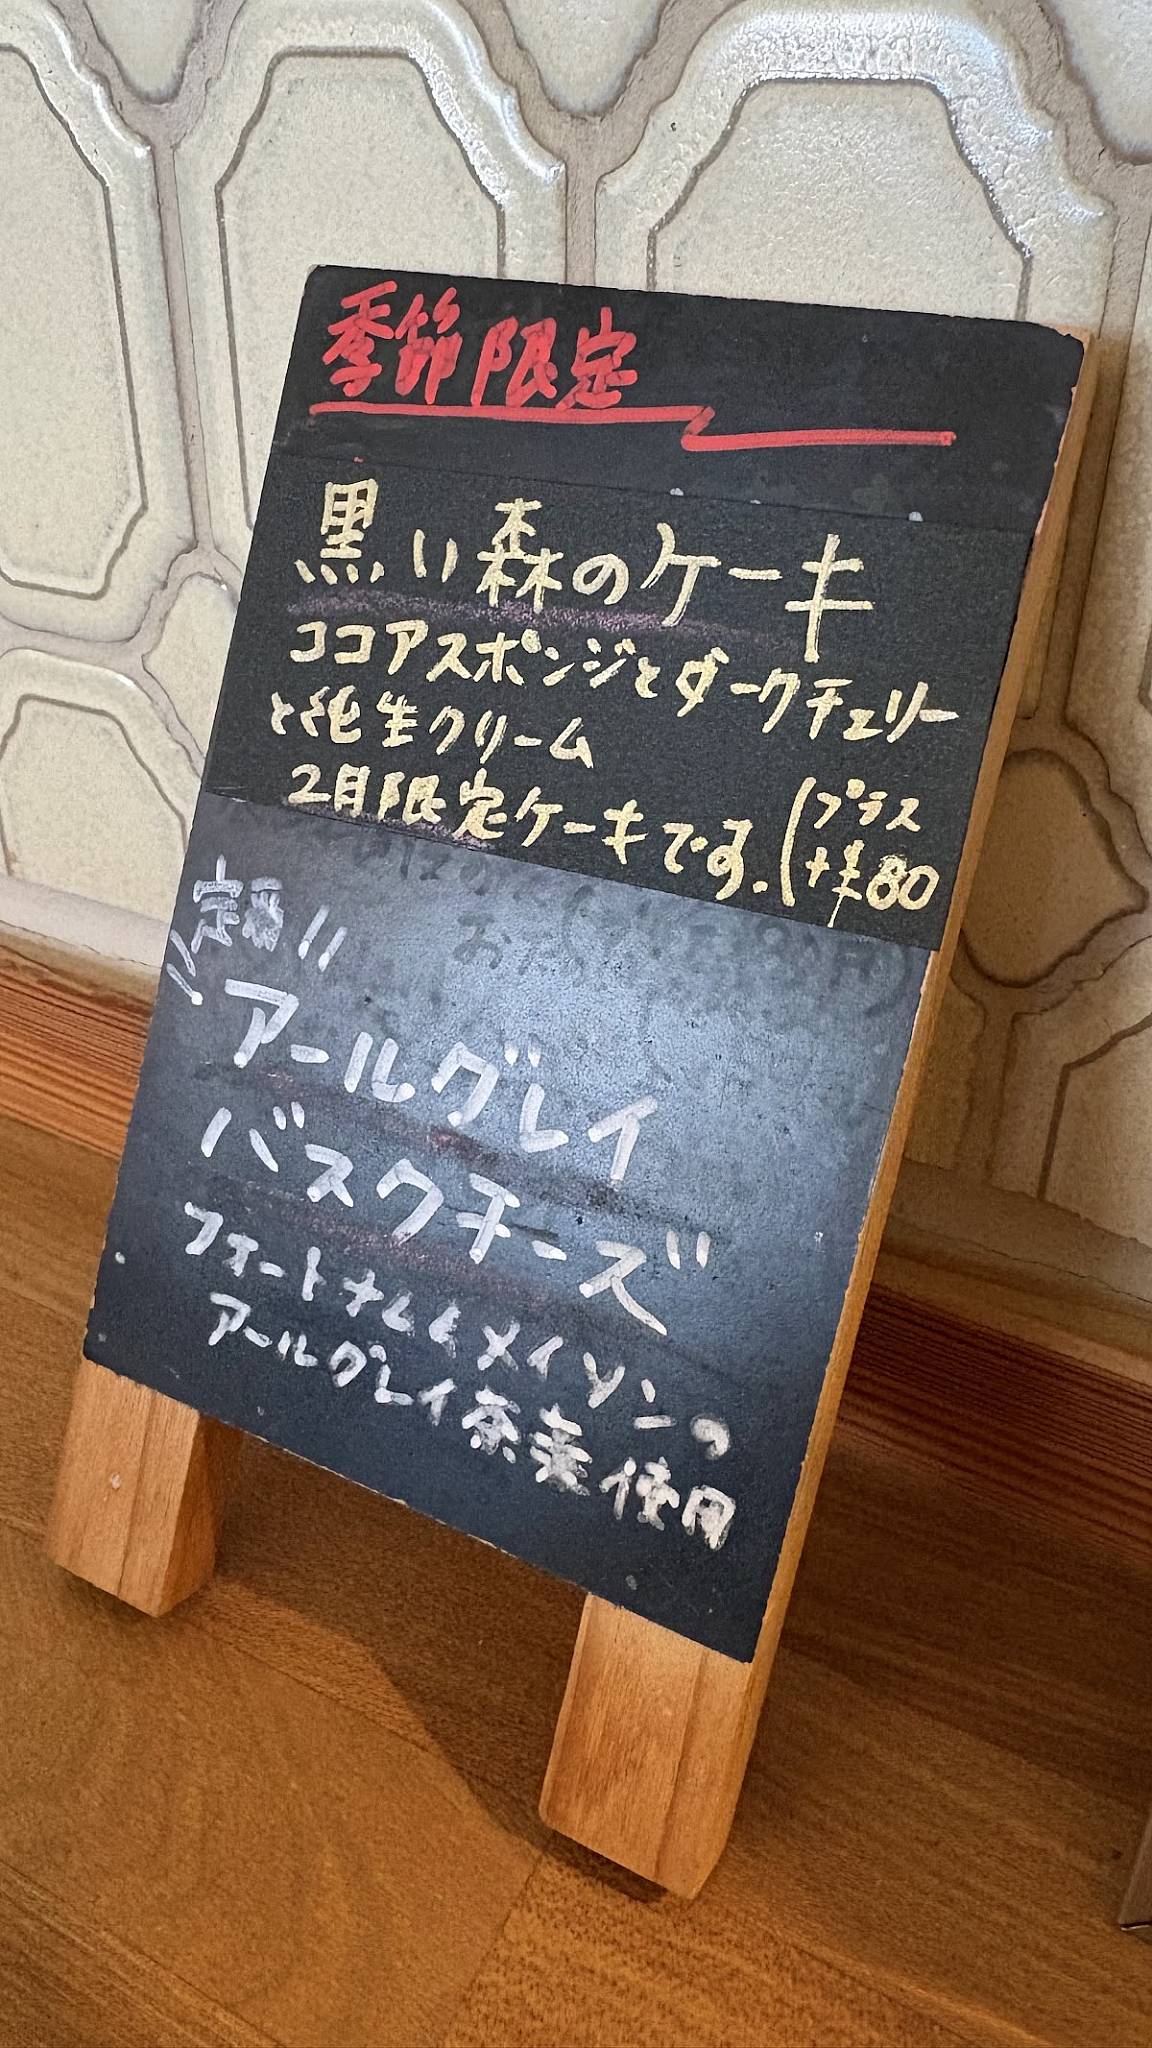 季節限定
黒い森のケーキ
ココアスポンジとダークチェリー
と純生クリーム
2月限定ケーキです。(プラス
+¥80
定番!!
アールグレイ
バスクチーズ
フォートナムメイソンの
アールグレイ茶葉使用